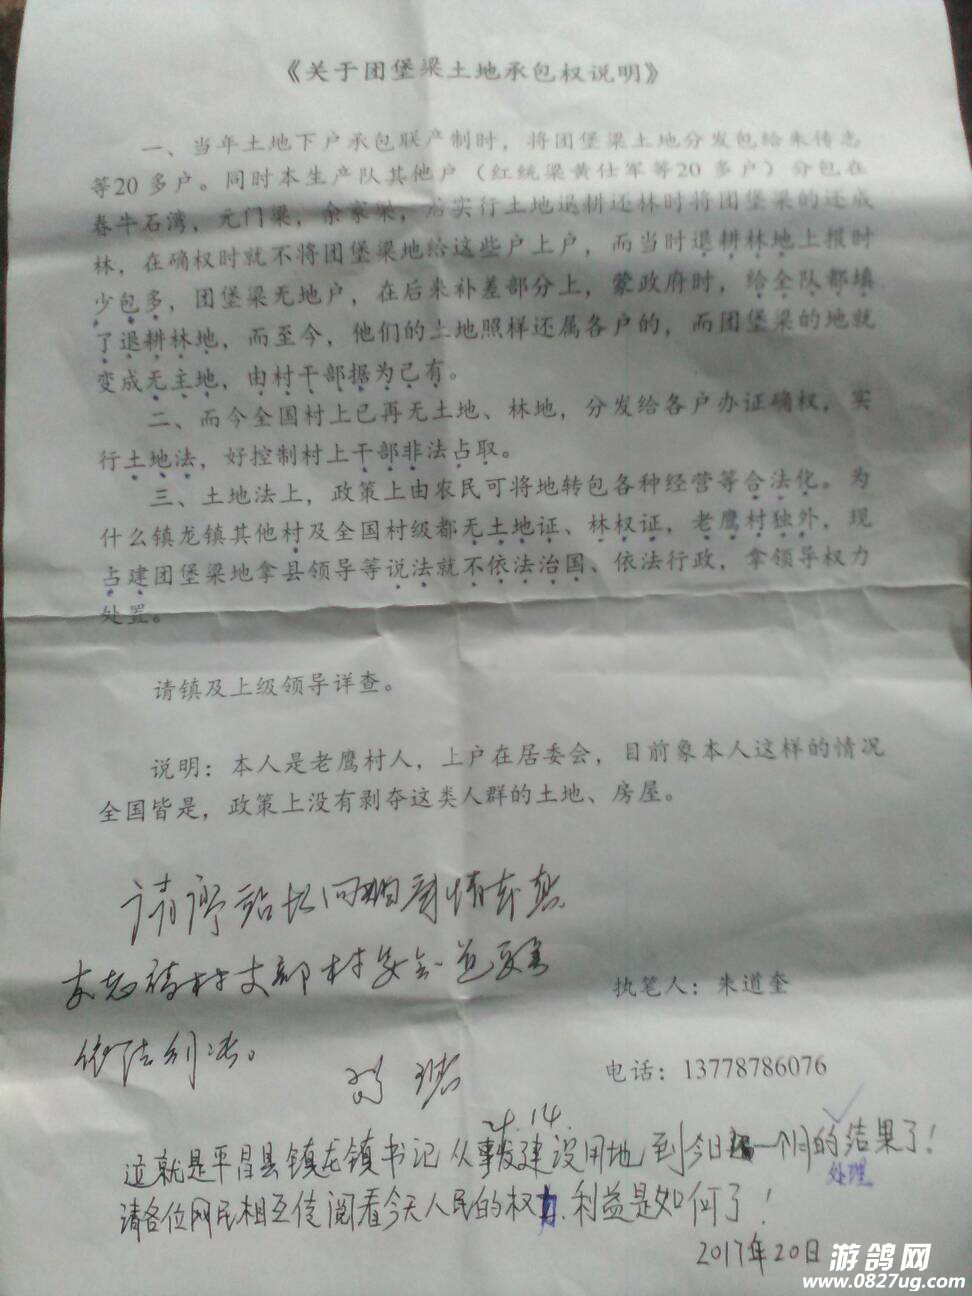 《关于团堡梁土地承包权说明》
一、当年土地下户承包联产制时，将团堡梁土地分发包给朱传志
等20多户。同时本生产队其他户（红统梁黄仕军等20多户）分包在
春牛石湾，元门梁，余家梁，后实行土地退耕还林时将团堡梁的还成
林，在确权时就不将团堡梁地给这些户上户，而当时退耕林地上报时
少包多，团堡梁无地户，在后来补差部分上，蒙政府时，给全队都填
了退耕林地，而至今，他们的土地照样还属各户的，而团堡梁的地就
变成无主地，由村干部据为己有。
二、而今全国村上已再无土地、林地，分发给各户办证确权，实
行土地法，好控制村上干部非法占取。
三、土地法上，政策上由农民可将地转包各种经营等合法化。为
什么镇龙镇其他村及全国村级都无土地证、林权证，老鹰村独外，现
占建团堡梁地拿县领导等说法就不依法治国、依法行政，拿领导权力
处置。
请镇及上级领导详查。
说明：本人是老鹰村人，上户在居委会，目前象本人这样的情况
全国皆是，政策上没有剥夺这类人群的土地、房屋。
请 站长
村支部村委会
依法
执笔人：朱道奎
电话：13778786076
4.14.
这就是平昌县镇龙镇书记从事发建设用地到今日一个月的结果了！
处理
请各位网民相互传阅看今天人民的权力.利益是如何了！
2017年20日
游鸽网
www.0827ug.com